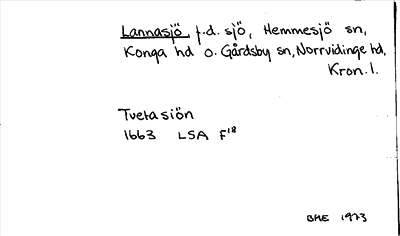 Lannasjö, f.d. sjö, Hemmesjö sn,
Konga hd o. Gårdsby sn, Norrvidinge hd,
Kron. l.
Tveta siön
1663 LSA F18
BHE 1973